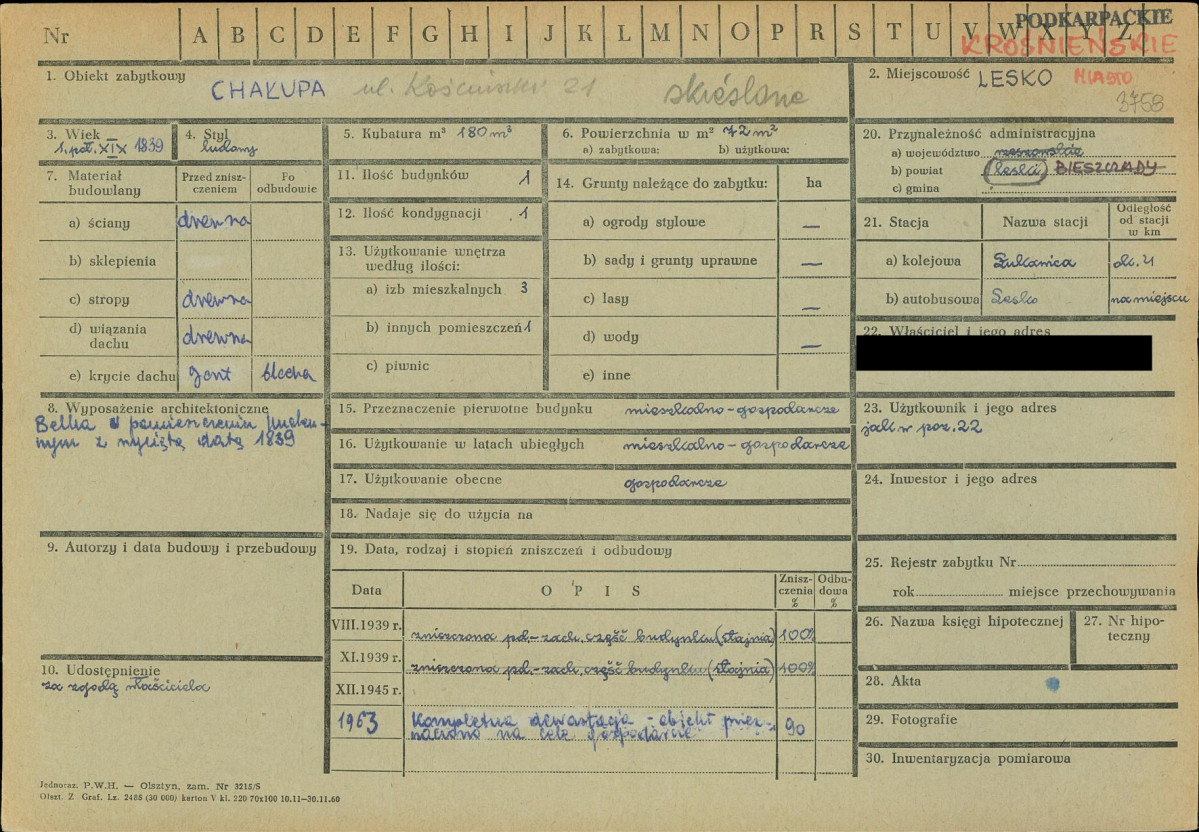 Nr A B C D E F G H I J K L M N O P R S T U V W X Y Z
PODKARPACKIE
KROŚNIEŃSKIE
1. Obiekt zabytkowy
CHAŁUPA ul. Kościuszki 21 skreślone
2. Miejscowość LESKO MIASTO
3758
3. Wiek
1. poł. XIX 1839
4. Styl
ludowy
5. Kubatura m³ 180 m³
6. Powierzchnia w m² 72 m²
a) zabytkowa: b) użytkowa:
20. Przynależność administracyjna
a) województwo rzeszowskie
b) powiat leski BIESZCZADY
c) gmina
7. Materiał budowlany
Przed zniszczeniem
Po odbudowie
a) ściany drewno
b) sklepienia
c) stropy drewno
d) wiązania dachu drewno
e) krycie dachu gont blacha
11. Ilość budynków 1
12. Ilość kondygnacji 1
13. Użytkowanie wnętrza
według ilości:
a) izb mieszkalnych 3
b) innych pomieszczeń 1
c) piwnic
14. Grunty należące do zabytku: ha
a) ogrody stylowe —
b) sady i grunty uprawne —
c) lasy —
d) wody —
e) inne
21. Stacja Nazwa stacji Odległość od stacji w km
a) kolejowa Łukawica ok. 4
b) autobusowa Lesko na miejscu
22. Właściciel i jego adres
8. Wyposażenie architektoniczne
Belka w pomieszczeniu
z wyciętą datą 1839
15. Przeznaczenie pierwotne budynku mieszkalno-gospodarcze
16. Użytkowanie w latach ubiegłych mieszkalno-gospodarcze
17. Użytkowanie obecne gospodarcze
18. Nadaje się do użycia na
23. Użytkownik i jego adres
jak w poz. 22
24. Inwestor i jego adres
9. Autorzy i data budowy i przebudowy
19. Data, rodzaj i stopień zniszczeń i odbudowy
Data OPIS Zniszczenia % Odbudowa %
VIII.1939 r. zniszczona pd.-zach. część budynku (stajnia) 100%
XI.1939 r. zniszczona pd.-zach. część budynku (stajnia) 100%
XII.1945 r.
1963 Kompletna dewastacja - obiekt przeznaczono na cele gospodarcze 90
25. Rejestr zabytku Nr
rok miejsce przechowywania
26. Nazwa księgi hipotecznej
27. Nr hipoteczny
10. Udostępnienie
za zgodą właściciela
28. Akta
29. Fotografie
30. Inwentaryzacja pomiarowa
Jednoraz. P.W.H. — Olsztyn, zam. Nr 3215/S
Olszt. Z Graf. Lz. 2485 (30 000) karton V kl. 220 70x100 10.11—30.11.60